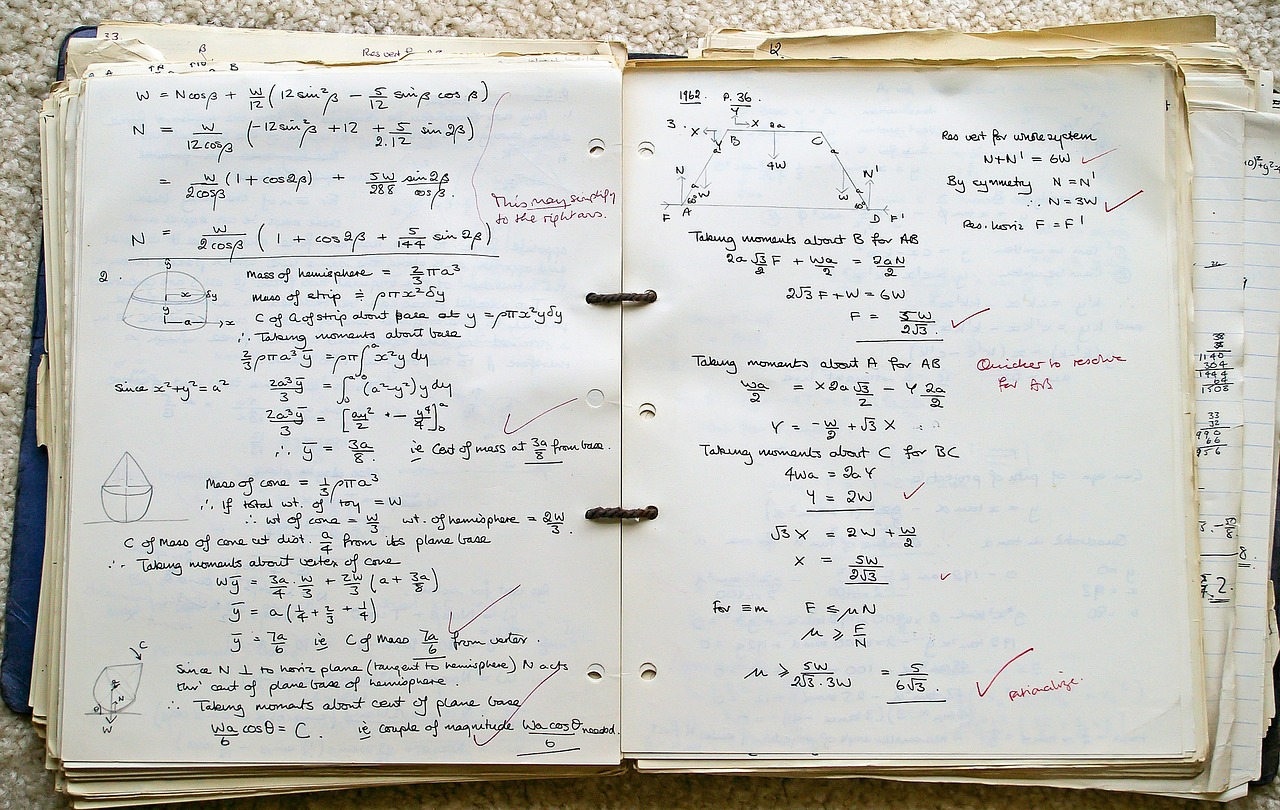 33.
β
Res vert
A B
W = N cosβ + W/12 (12 sin²β − 5/12 sinβ cosβ)
N = W/12cosβ (−12 sin²β + 12 + 5/2.12 sin 2β)
= W/2cosβ (1 + cos2β) + 5W/288 sin2β/cosβ.
This may simplify
to the right ans.
N = W/2cosβ (1 + cos 2β + 5/144 sin 2β)
2.
y
x δy
y
a x
Mass of hemisphere = 2/3 πa³
Mass of strip ≑ ρπx²δy
C of G of strip about base at y = ρπx²yδy
∴ Taking moments about base
2/3 ρπa³ȳ = ρπ∫₀ᵃ x²y dy
Since x²+y² = a² 2a³ȳ/3 = ∫₀ᵃ (a²−y²) y dy
2a³ȳ/3 = [ay²/2 − y⁴/4]₀ᵃ
∴ ȳ = 3a/8 ie Cent of mass at 3a/8 from base.
Mass of cone = 1/3 ρπa³
∴ If total wt. of toy = W
∴ wt of cone = W/3 wt. of hemisphere = 2W/3.
C of Mass of cone at dist. a/4 from its plane base
∴ Taking moments about vertex of cone
Wȳ = 3a/4 . W/3 + 2W/3 (a + 3a/8)
ȳ = a(1/4 + 2/3 + 1/4)
ȳ = 7a/6 ie C of Mass 7a/6 from vertex.
C
N
θ
W
Since N ⊥ to horiz plane (tangent to hemisphere) N acts
thro' cent of plane base of hemisphere.
∴ Taking moments about cent of plane base
Wa/6 cosθ = C. ie couple of magnitude Wa cosθ/6 needed.
12.
1962. P. 36.
Y
3. X B X 2a C
Y a a
4W
N a a N'
W W
60° 60°
F A D F'
Res vert for whole system
N+N' = 6W
By symmetry N = N'
∴ N = 3W
Res. horiz F = F'
Taking moments about B for AB
2a √3/2 F + Wa/2 = 2aN/2
2√3 F + W = 6W
F = 5W/2√3.
Taking moments about A for AB
Quicker to resolve
for AB
Wa/2 = X 2a √3/2 − Y 2a/2
Y = −W/2 + √3 X
Taking moments about C for BC
4Wa = 2aY
Y = 2W
√3 X = 2W + W/2
X = 5W/2√3
For ≡m F ≤ μN
μ ≥ F/N
μ ≥ 5W/2√3.3W = 5/6√3.
rationalize.
38
38
1140
304
1444
64
1508
33
32
990
66
956
8.
2.